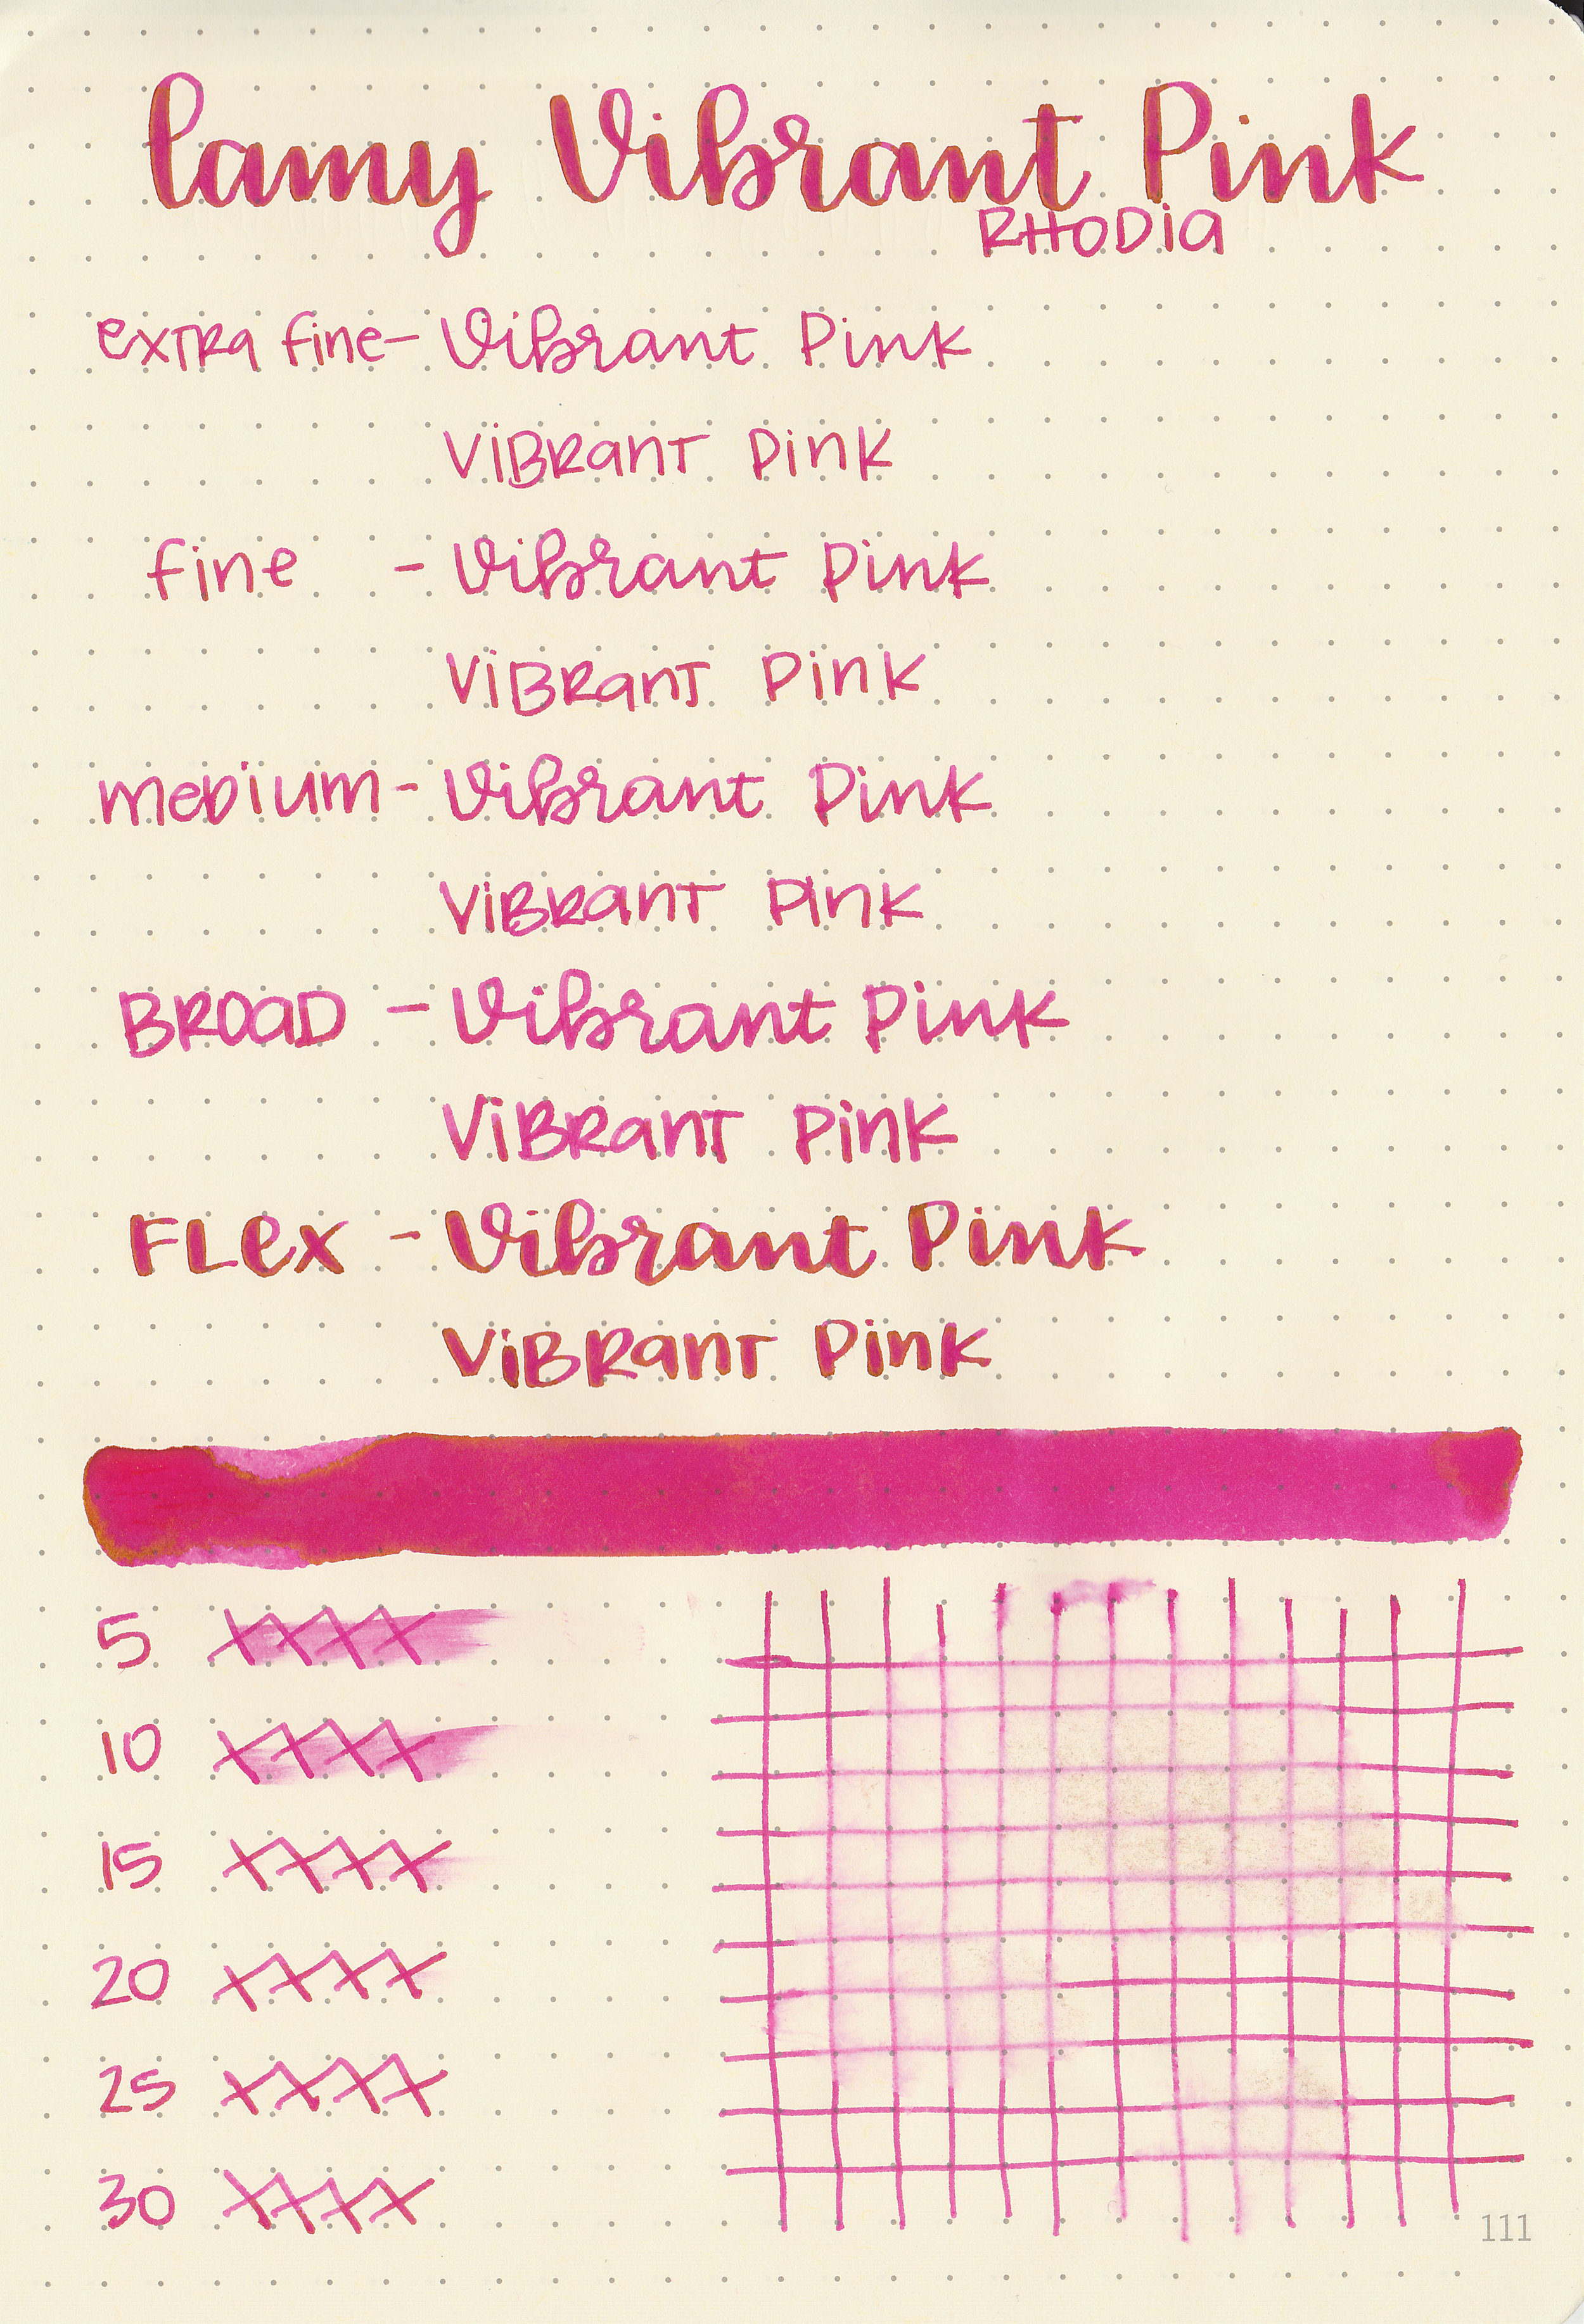 lamy Vibrant Pink
RHODIA
extra fine - Vibrant Pink
VIBRANT PINK
fine - Vibrant Pink
VIBRANT PINK
medium - Vibrant Pink
VIBRANT PINK
BROAD - Vibrant Pink
VIBRANT PINK
FLEX - Vibrant Pink
VIBRANT PINK
5 XXXX
10 XXXX
15 XXXX
20 XXXX
25 XXXX
30 XXXX
111